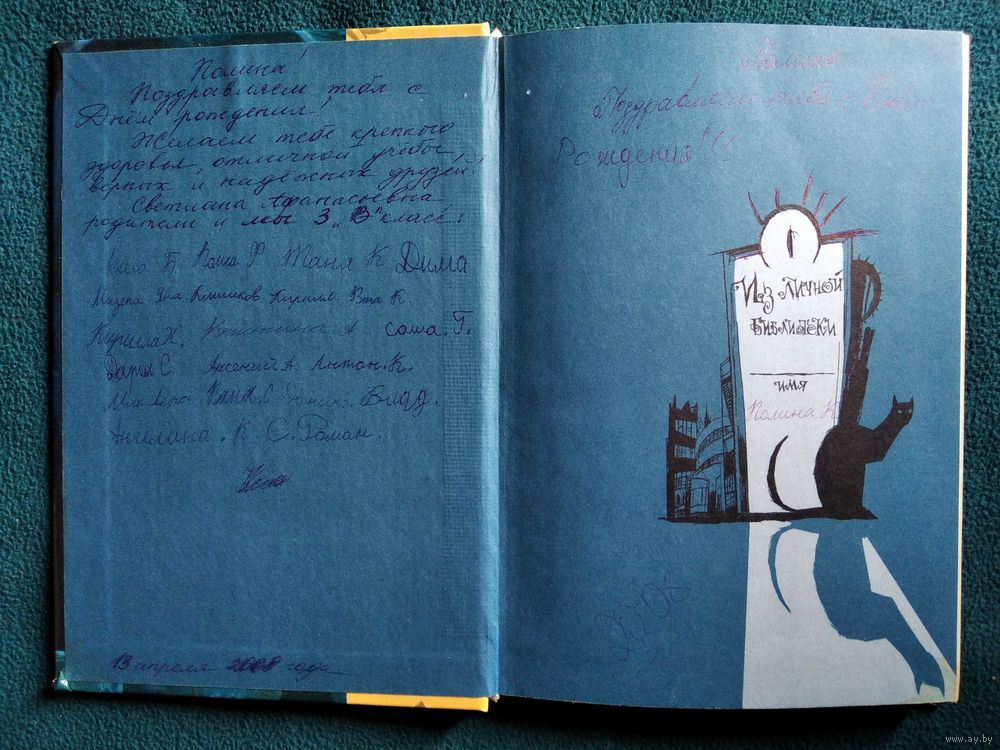 Полина!
Поздравляем тебя с
Днём рождения!
Желаем тебе крепкого
здоровья, отличной учёбы,
верных и надёжных друзей!
Светлана Афанасьевна
родители и мы 3 „В" класс!
Б. Ф Таня К Дима
Яна Климков. Кирилл. К.
Кирилл Х. А Саша. Г.
Дарья С. Арсений А. Антон. К.
Ваня. С. Влад.
Ангелина. К С. Роман.
13 апреля 2008 года
Поздравляем тебя с Днём
Рождения!!!
Из личной
библиотеки
имя
Полина К
2008
www.ay.by